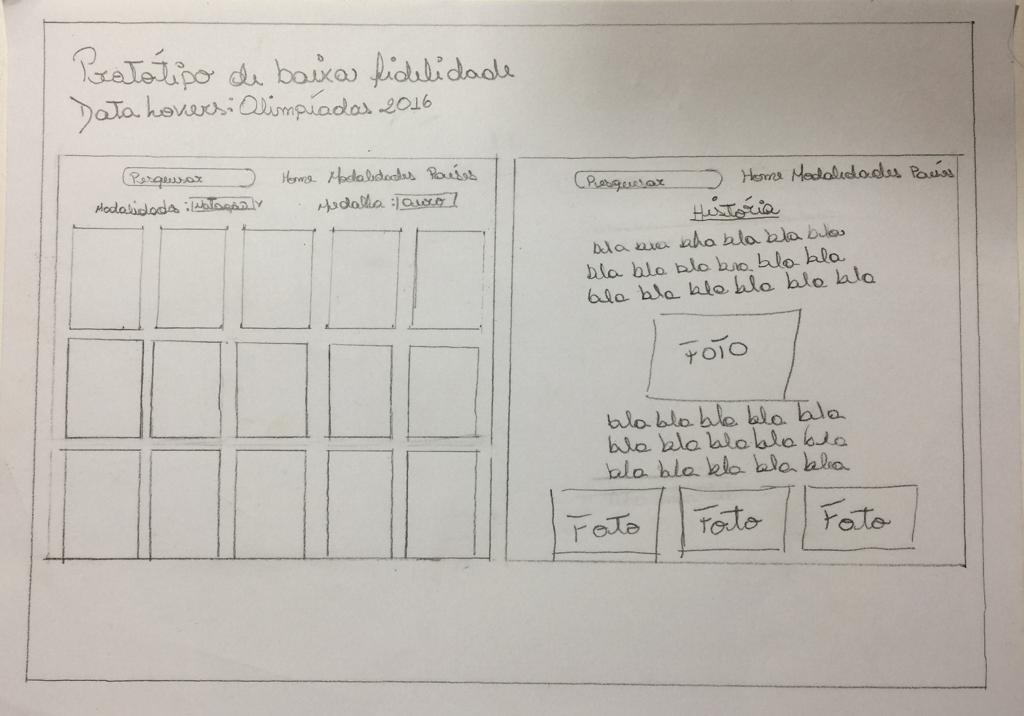 Protótipo de baixa fidelidade
Data lovers: Olimpíadas 2016
Pesquisar Home Modalidades Países
Modalidades: Natação Medalha: ouro
Pesquisar Home Modalidades Países
História
bla bla bla bla bla bla
bla bla bla bla bla bla
bla bla bla bla bla bla
FOTO
bla bla bla bla bla
bla bla bla bla bla
bla bla bla bla bla
Foto Foto Foto